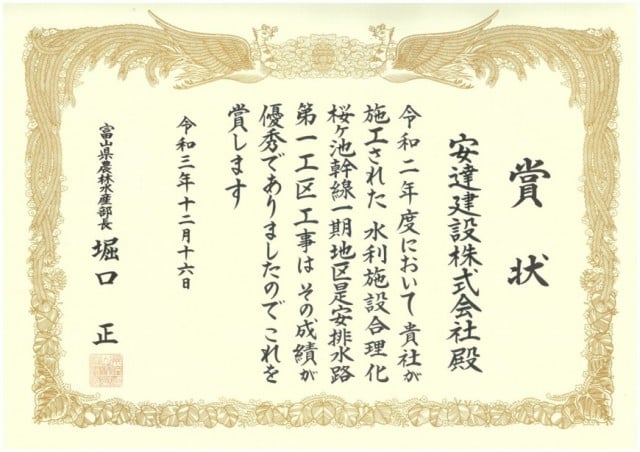 賞状
安達建設株式会社殿
令和二年度において貴社が
施工された水利施設合理化
桜ヶ池幹線一期地区是安排水路
第一工区工事はその成績が
優秀でありましたのでこれを
賞します
令和三年十二月十六日
富山県農林水産部長 堀口 正